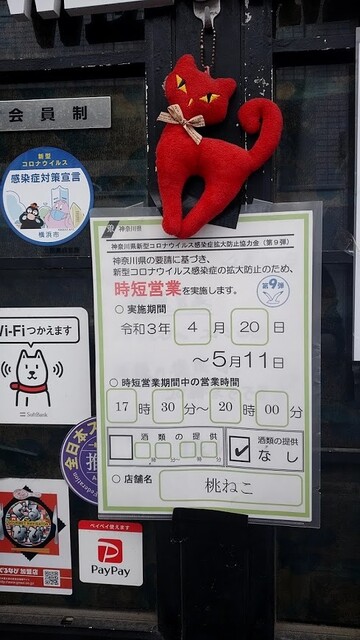 会員制
新型
コロナウイルス
感染症対策宣言
横浜市
神奈川県
神奈川県新型コロナウイルス感染症拡大防止協力金(第9弾)
神奈川県の要請に基づき、
新型コロナウイルス感染症の拡大防止のため、
時短営業を実施します。
第9弾
○実施期間
令和3年 4月 20日
~5月11日
○時短営業期間中の営業時間
17時30分~20時00分
酒類の提供
酒類の提供
なし
○店舗名
桃ねこ
Wi-Fiつかえます
SoftBank
全日本
推
ぐるなび 加盟店
ペイペイ使えます
PayPay